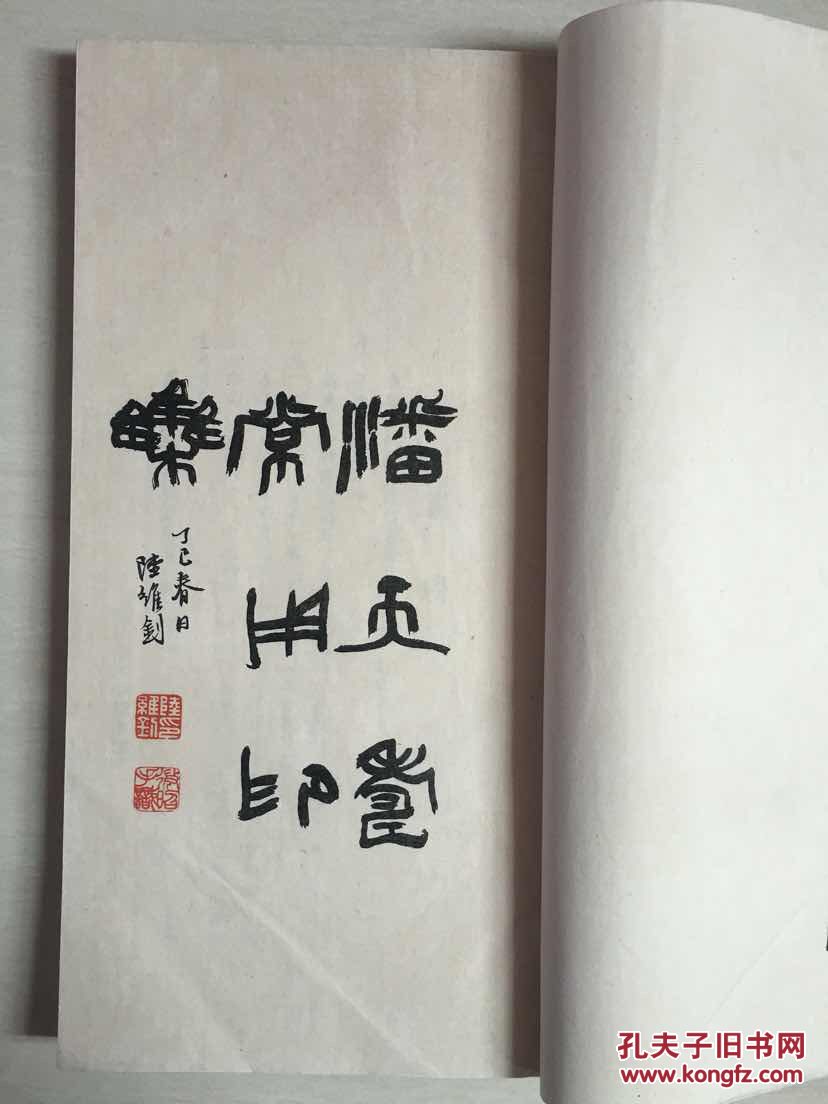 潘天壽
常用印
集
丁巳春日
陸維釗
陸印維釗
孔夫子旧书网
www.kongfz.com